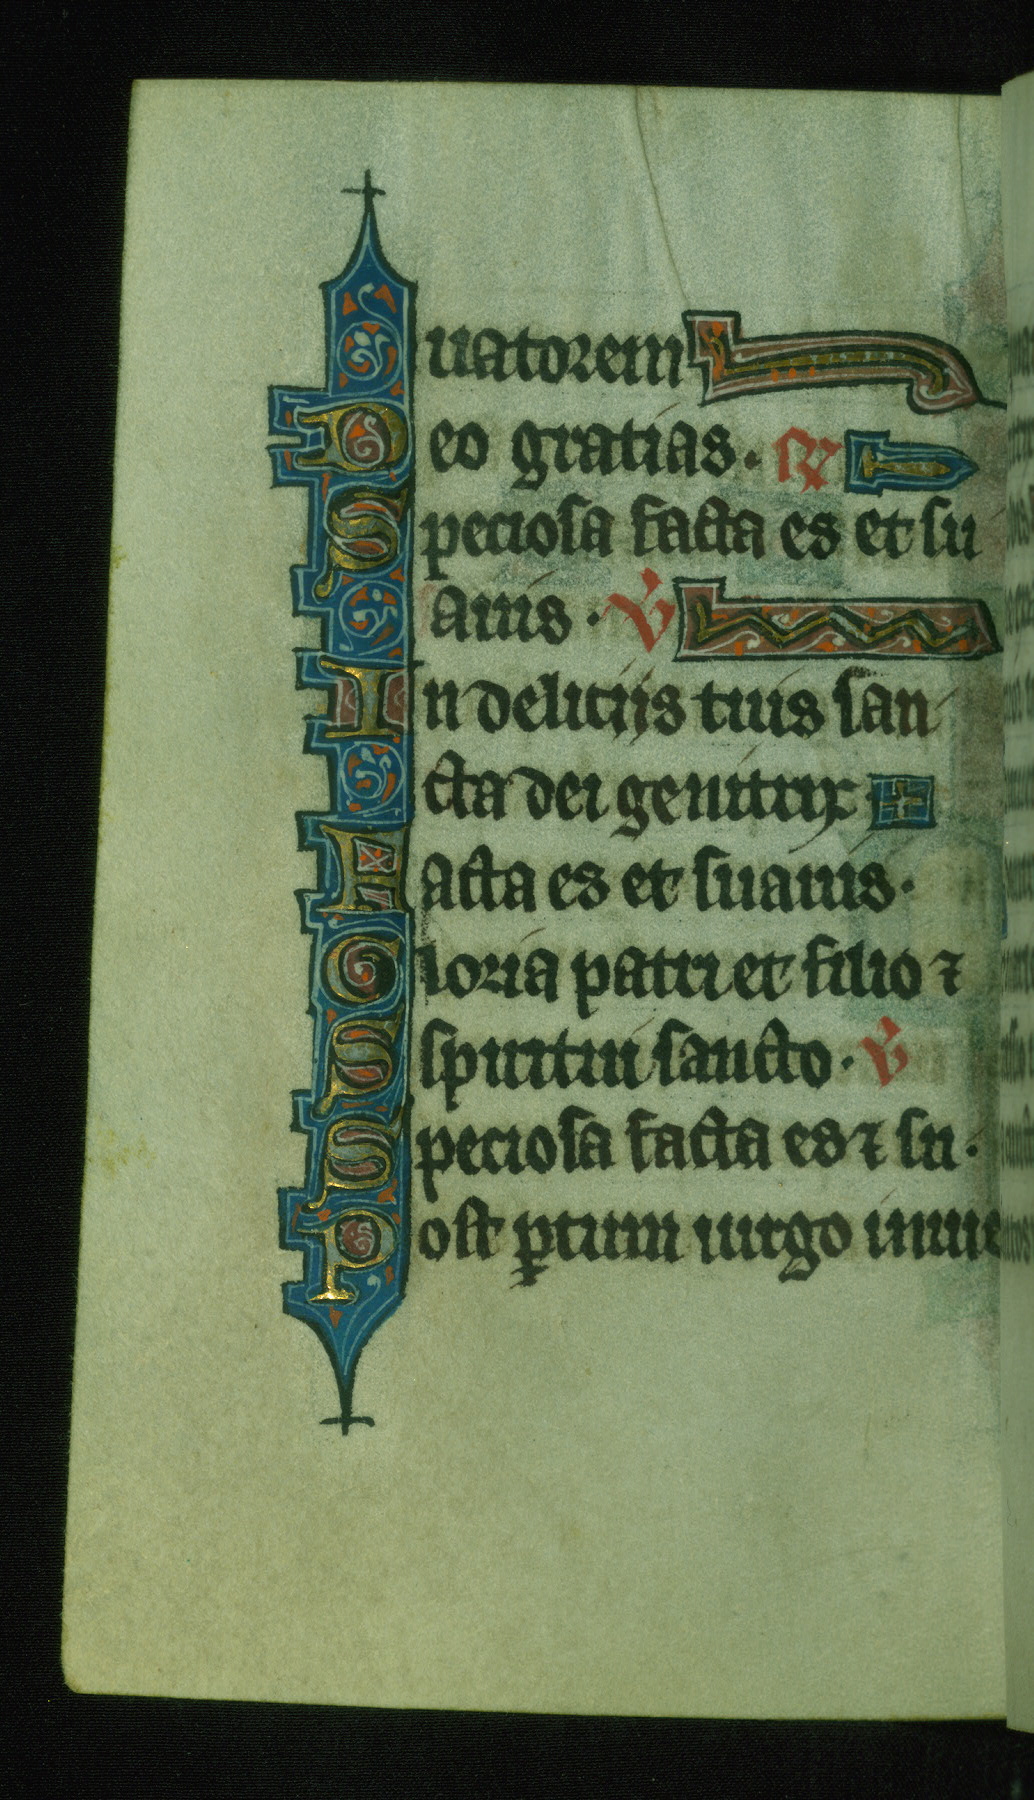 uatorem
Deo gratias. R
Speciosa facta es et su
auis. V
In deliciis tuis san
cta dei genitrix
Facta es et suauis.
Gloria patri et filio ⁊
Spiritui sancto. V
Speciosa facta es ⁊ su.
Post ꝑtum uirgo inuio